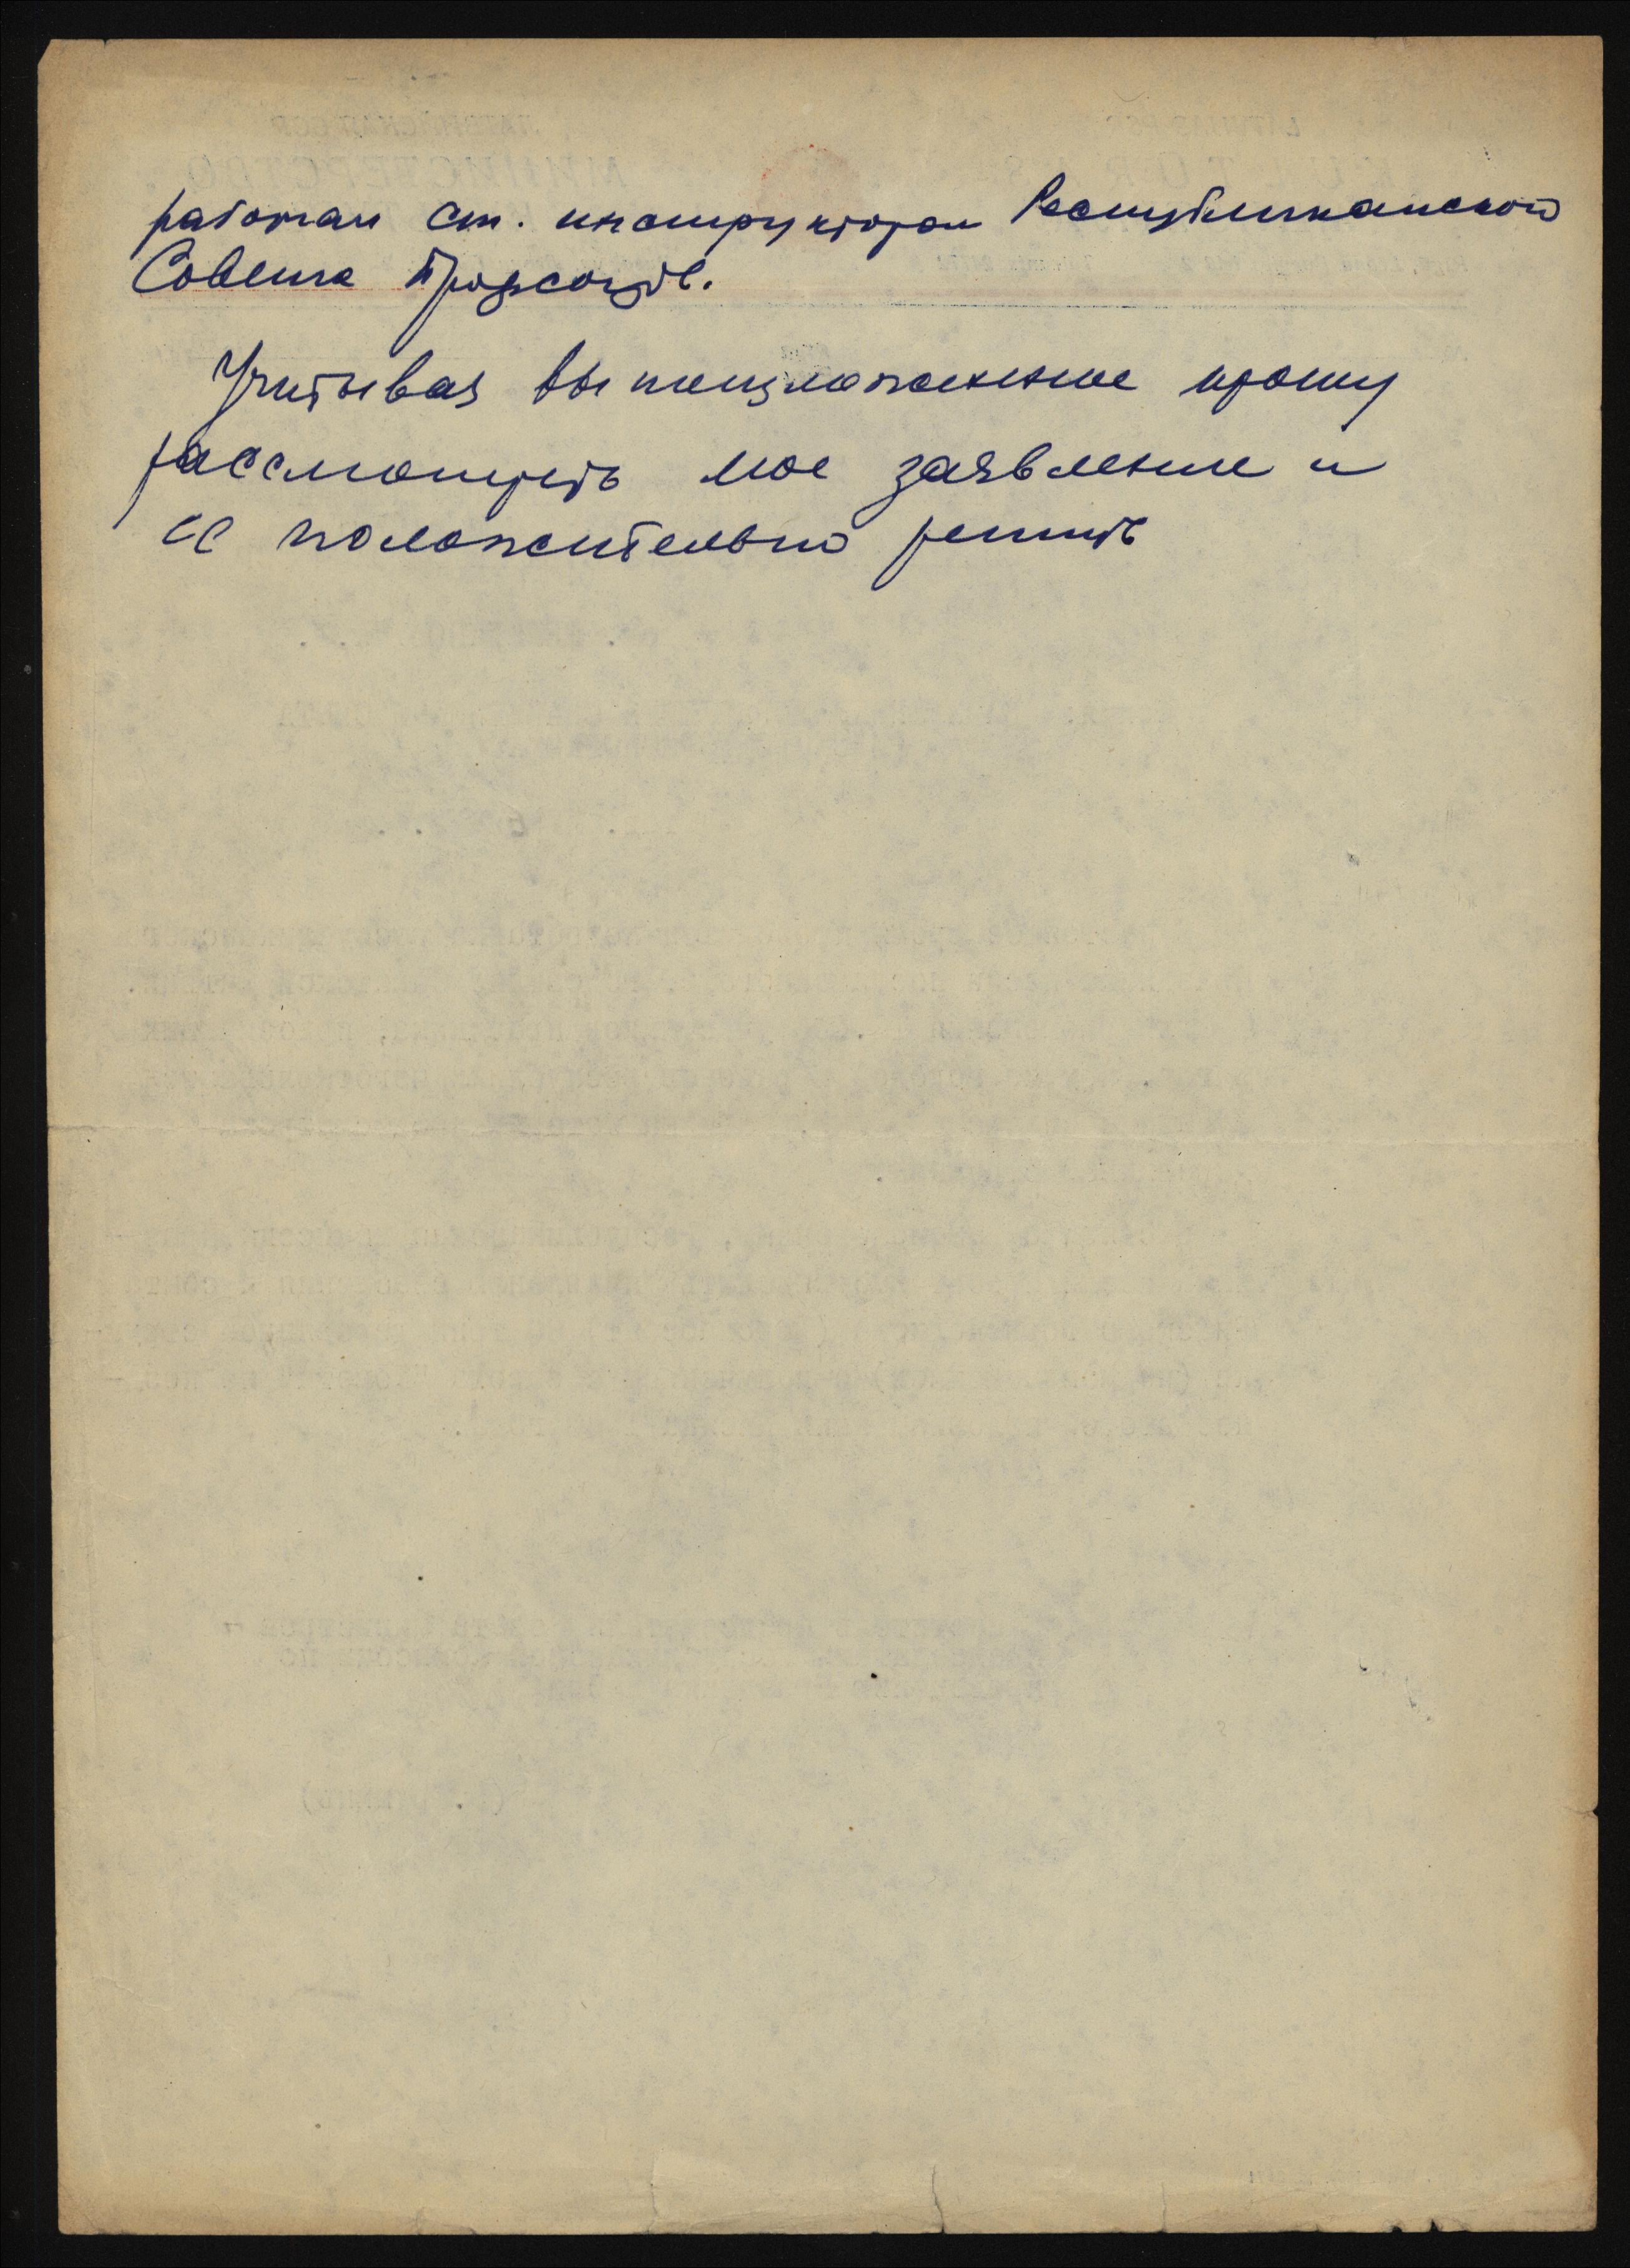 работал ст. инструктором Республиканской
Совета Профсоюзов.
Учитывая вышеизложенное прошу
рассмотреть мое заявление и
ее положительно решить